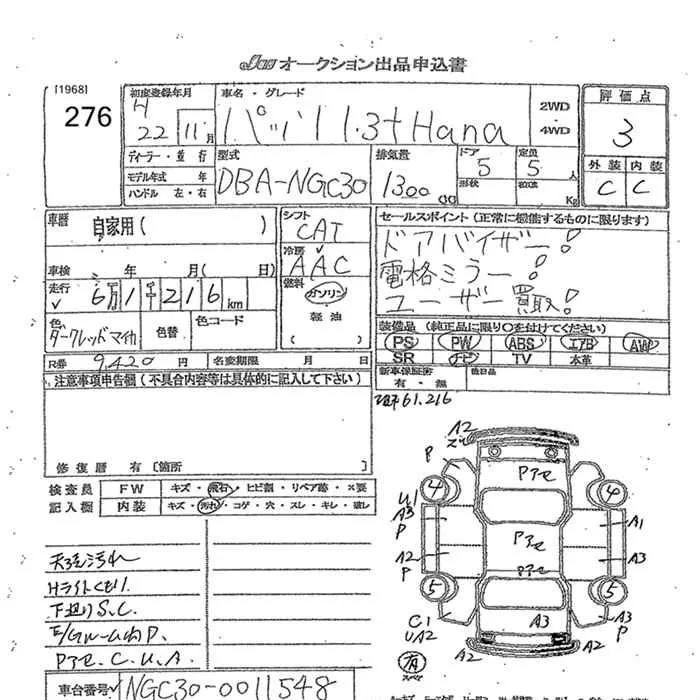 JAA オークション出品申込書
[1968]
276
初度登録年月
H 22 11月
車名・グレード
パッソ 1.3+Hana
2WD
・
4WD
評価点
3
ディーラー・並行
モデル年式 年
ハンドル 左・右
型式
DBA-NGC30
排気量
1300 CC
ドア
5
形状
定員
5 人
積載 Kg
外装 内装
C C
車歴
自家用( )
シフト
CAT
セールスポイント (正常に機能するものに限ります)
ドアバイザー!
電格ミラー!
ユーザー買取!
冷房
AAC
車検 年 月( 日)
走行
6万1千216km
燃料
ガソリン
軽油
( )
色
ダークレッドマイカ
色替
色コード
装備品 (純正品に限り○を付けてください)
PS PW ABS エアB AW
SR ナビ TV 本革
R券 9,420円
名変期限 月 日
新車保証書
有・無
後日品
注意事項申告欄(不具合内容等は具体的に記入して下さい)
61,216
修復歴 有〔箇所 〕
検査員
記入欄
FW キズ・飛石・ヒビ割・リペア跡・×要
内装 キズ・汚れ・コゲ・穴・スレ・キレ・破レ
天張汚れ
Hライトくもり
下廻りS.C.
E/Gルーム内P.
Pアセ.C.U.A.
車台番号 NGC30-0011548
A2
P
Pアセ
4 4
U1
A3
P
A1
A2
P
Pアセ
A3
Pアセ
5 5
C1
UA2
A3
A3
P
A2
A2
有
スペア